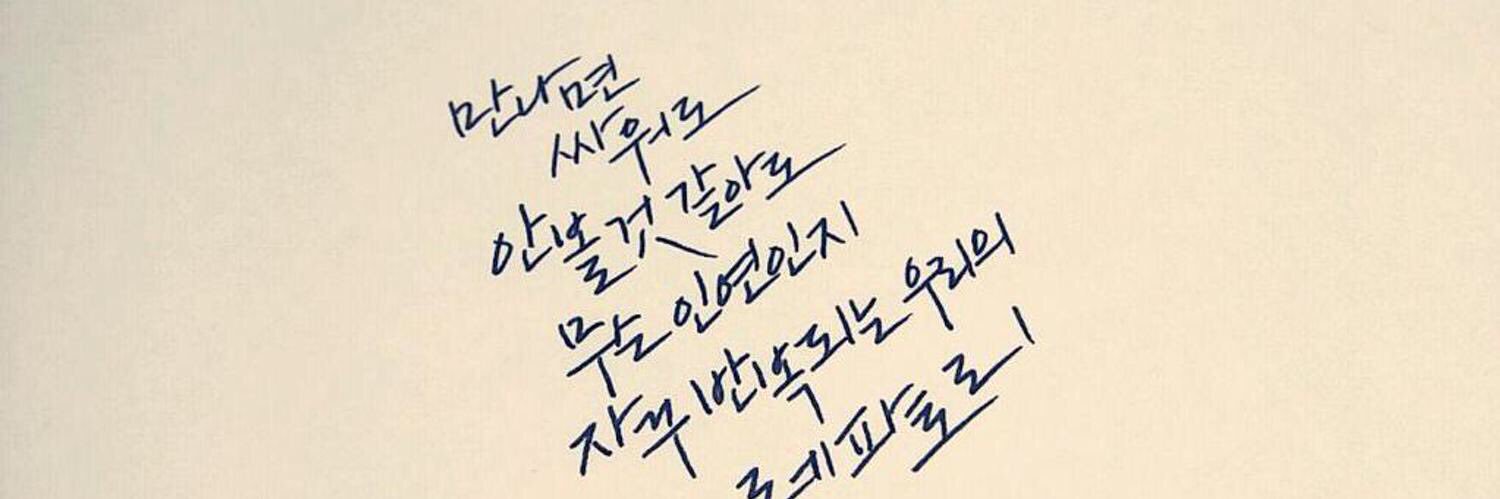 만나면
싸워도
안볼것 같아도
무슨 인연인지
자꾸 반복되는 우리의
레파토리